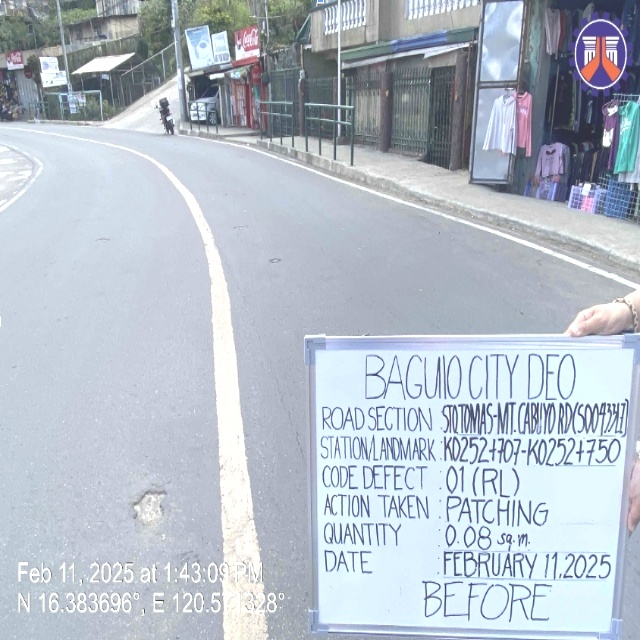 BAGUIO CITY DEO
ROAD SECTION : STO TOMAS-MT. CABUYO RD
STATION/LANDMARK : K0252+707-K0252+750
CODE DEFECT : 01 (RL)
ACTION TAKEN : PATCHING
QUANTITY : 0.08 sq.m.
DATE : FEBRUARY 11,2025
BEFORE
Feb 11, 2025 at 1:43:09 PM
N 16.383696°,